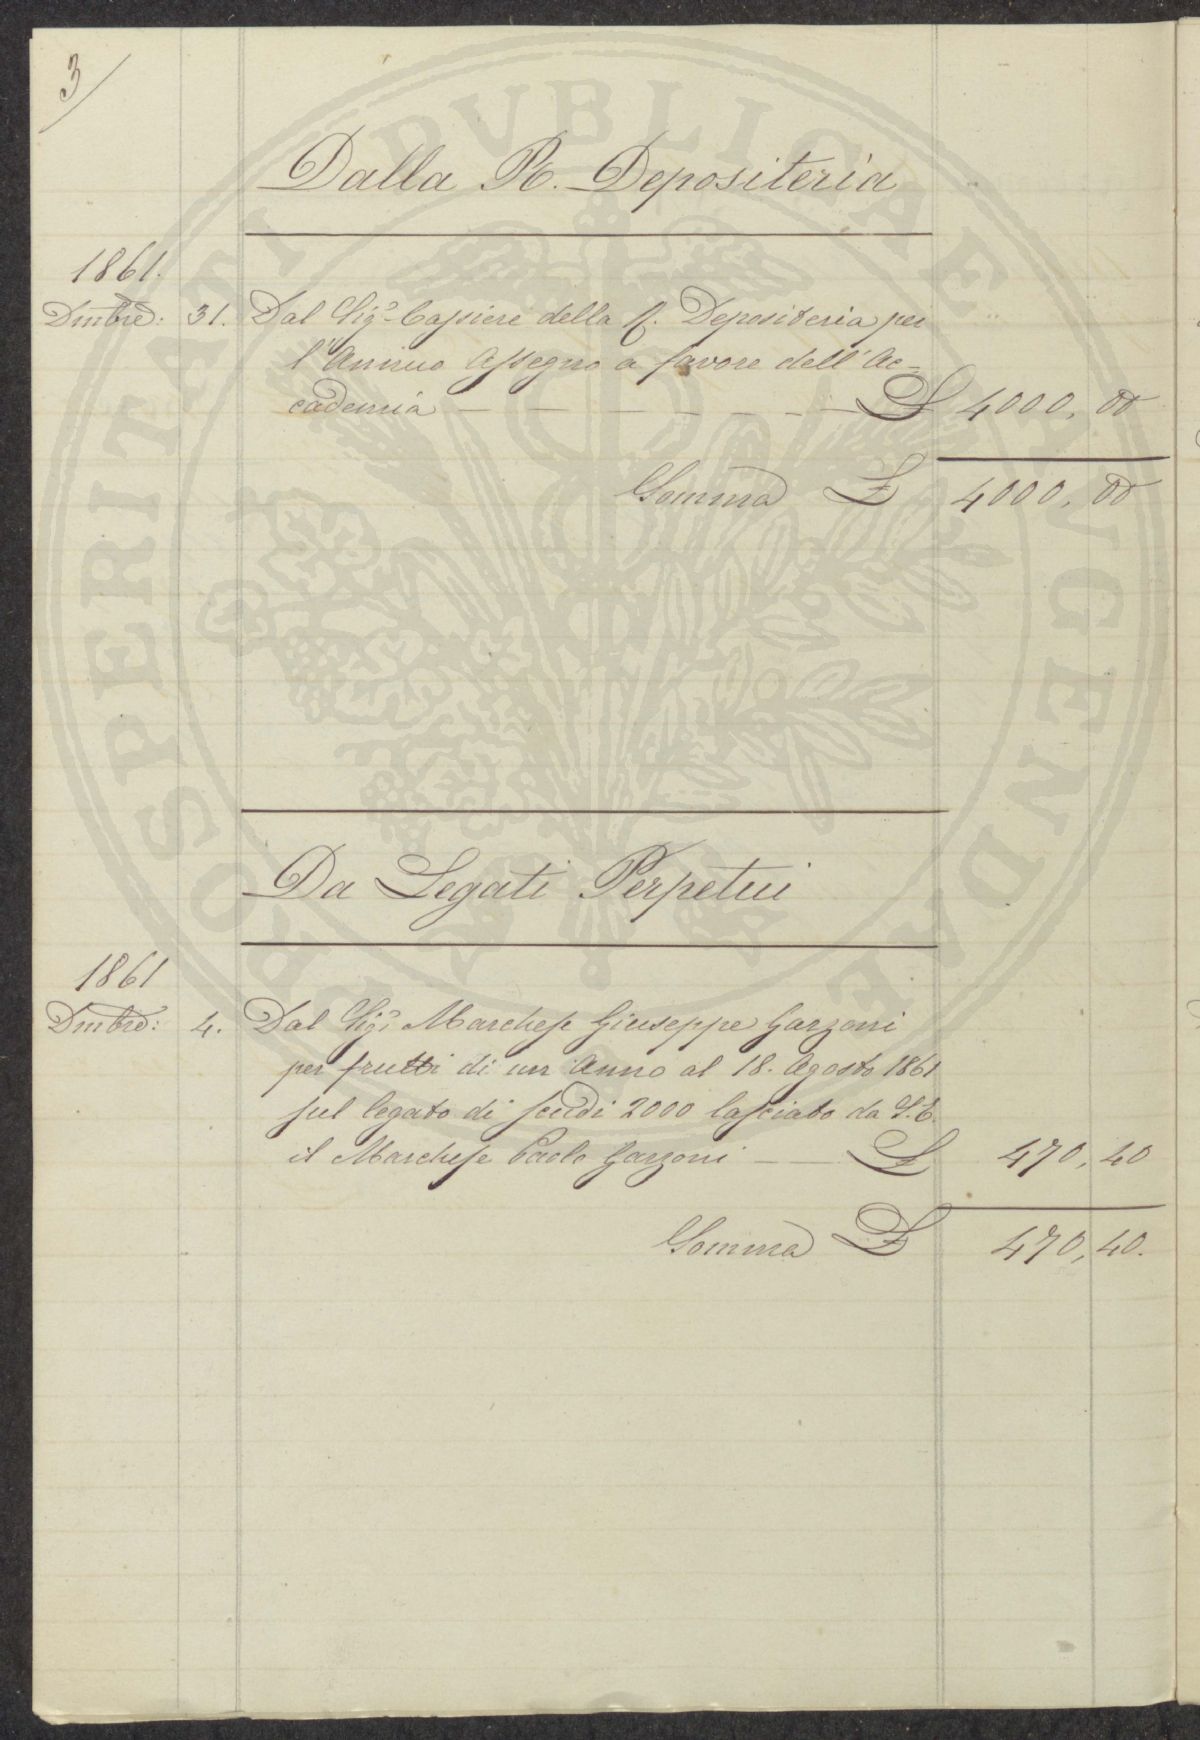 3
Dalla R. Depositeria
1861.
Dmbre: 31. Dal Sigr Cassiere della R. Depositeria per
l'Annuo Assegno a favore dell'Ac=
cademia — — — — — — — £ 4000, 00
Somma £ 4000, 00
Da Legati Perpetui
1861
Dmbre: 4. Dal Sigr Marchese Giuseppe Garzoni
per frutti di un Anno al 18. Agosto 1861
sul legato di scudi 2000 lasciato da S.E.
il Marchese Paolo Garzoni — — £ 470, 40
Somma £ 470, 40.
PROSPERITATI PVBLICAE AVGENDAE